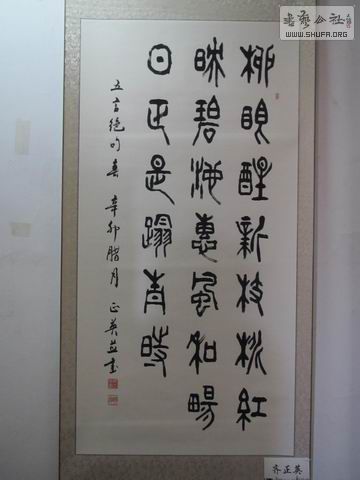 書藝公社
WWW.SHUFA.ORG
柳眼醒新枝桃紅
映碧池惠風和暢
日正是踏青時
五言绝句春 辛卯腊月 正英並书
齐正英